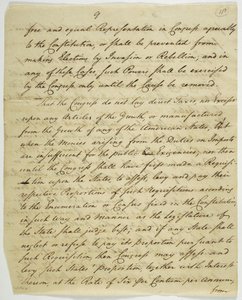 9
free and equal Representation in Congress agreeably
to the Constitution, or shall be prevented from
making Elections by Invasion or Rebellion, and in
any of these Cases such Powers shall be exercised
by the Congress only until the Cause be removed.
That the Congress do not lay direct Taxes, nor Excises
upon any Articles of the Growth or manufactured
from the Growth of any of the American States, But
when the Monies arising from the Duties on Imposts
are insufficient for the public Exigencies, nor then
until the Congress shall have first made a Requisi-
-tion upon the States to assess, levy and pay their
respective Proportions of such Requisitions according
to the Enumeration or Census fixed in the Constitution
in such way and manner as the legislature of
the State shall judge best, and if any State shall
neglect or refuse to pay its Proportion pursuant to
such Requisition, then Congress may assess and
levy such State's Proportion, together with Interest
thereon at the Rate of Six Per Centum per annum,
from